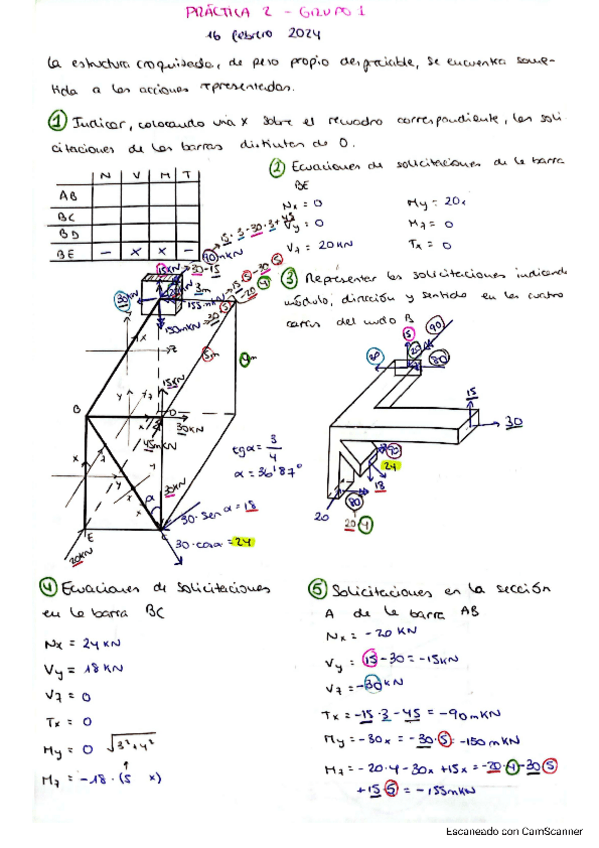 PRÁCTICA 2 - GRUPO 1
16 febrero 2024
La estructura croquizada, de peso propio despreciable, se encuentra some-
tida a las acciones representadas.
① Indicar, colocando una x sobre el recuadro correspondiente, las soli
citaciones de las barras distintas de 0.
N V M T
AB
BC
BD
BE - x x -
② Ecuaciones de solicitaciones de la barra
BE
Nx = 0
My = 20x
Vy = 0
Mz = 0
Vz = 20 KN
Tx = 0
15·3-30·3+45
90mKN
15KN
30-15
30KN
3m
155mKN
150mKN
③ Representar las solicitaciones indicando
módulo, dirección y sentido en las cuatro
caras del nudo B
5m
15KN
B
D
30KN
45mKN
30KN
α
E
C
20KN
tgα = 3/4
α = 36'87°
30·senα = 18
30·cosα = 24
90
80
15
30
90
24
18
80
20
20·4
④ Ecuaciones de solicitaciones
en la barra BC
Nx = 24 KN
Vy = 18 KN
Vz = 0
Tx = 0
My = 0 √3²+4²
Mz = -18·(5 x)
⑤ Solicitaciones en la sección
A de la barra AB
Nx = -20 KN
Vy = 15-30 = -15KN
Vz = -30 KN
Tx = -15·3-45 = -90mKN
My = -30x = -30·5 = -150 mKN
Mz = -20·4-30x+15x = -20·4-30·5
+15·5 = -155mKN
Escaneado con CamScanner